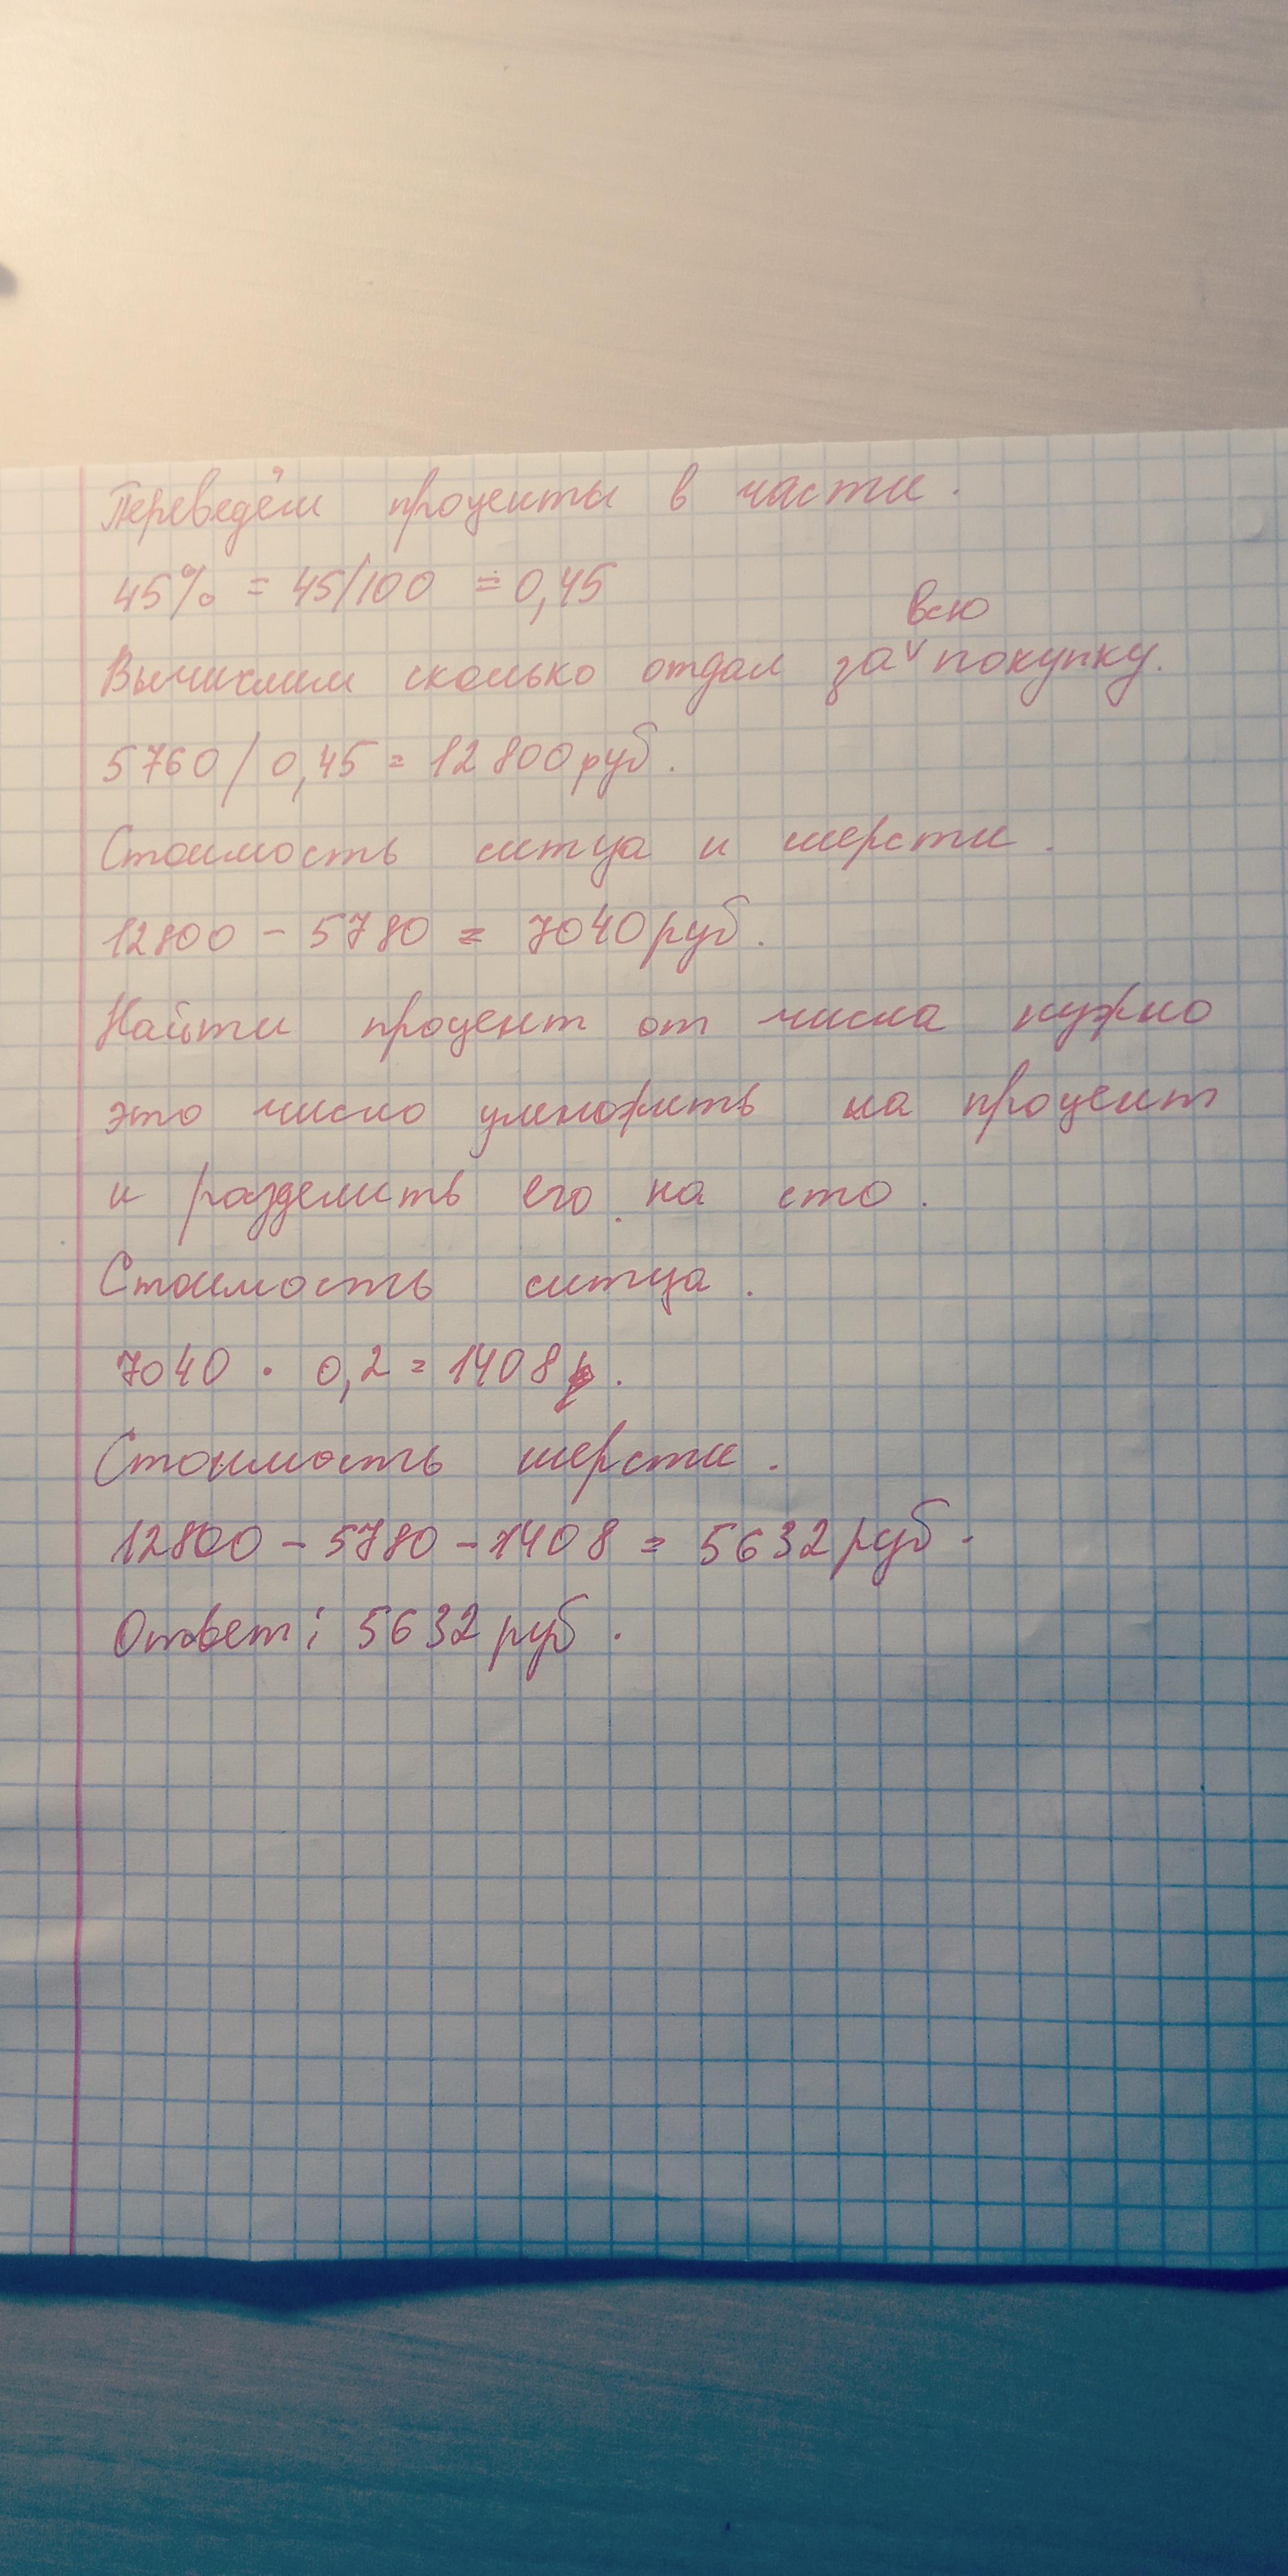 Переведём проценты в части.
45% = 45/100 = 0,45
Вычислим сколько отдал за всю покупку.
5760 / 0,45 = 12800 руб.
Стоимость ситца и шерсти.
12800 - 5780 = 7040 руб.
Найти процент от числа нужно
это число умножить на процент
и разделить его на сто.
Стоимость ситца.
7040 · 0,2 = 1408 р.
Стоимость шерсти.
12800 - 5780 - 1408 = 5632 руб.
Ответ: 5632 руб.